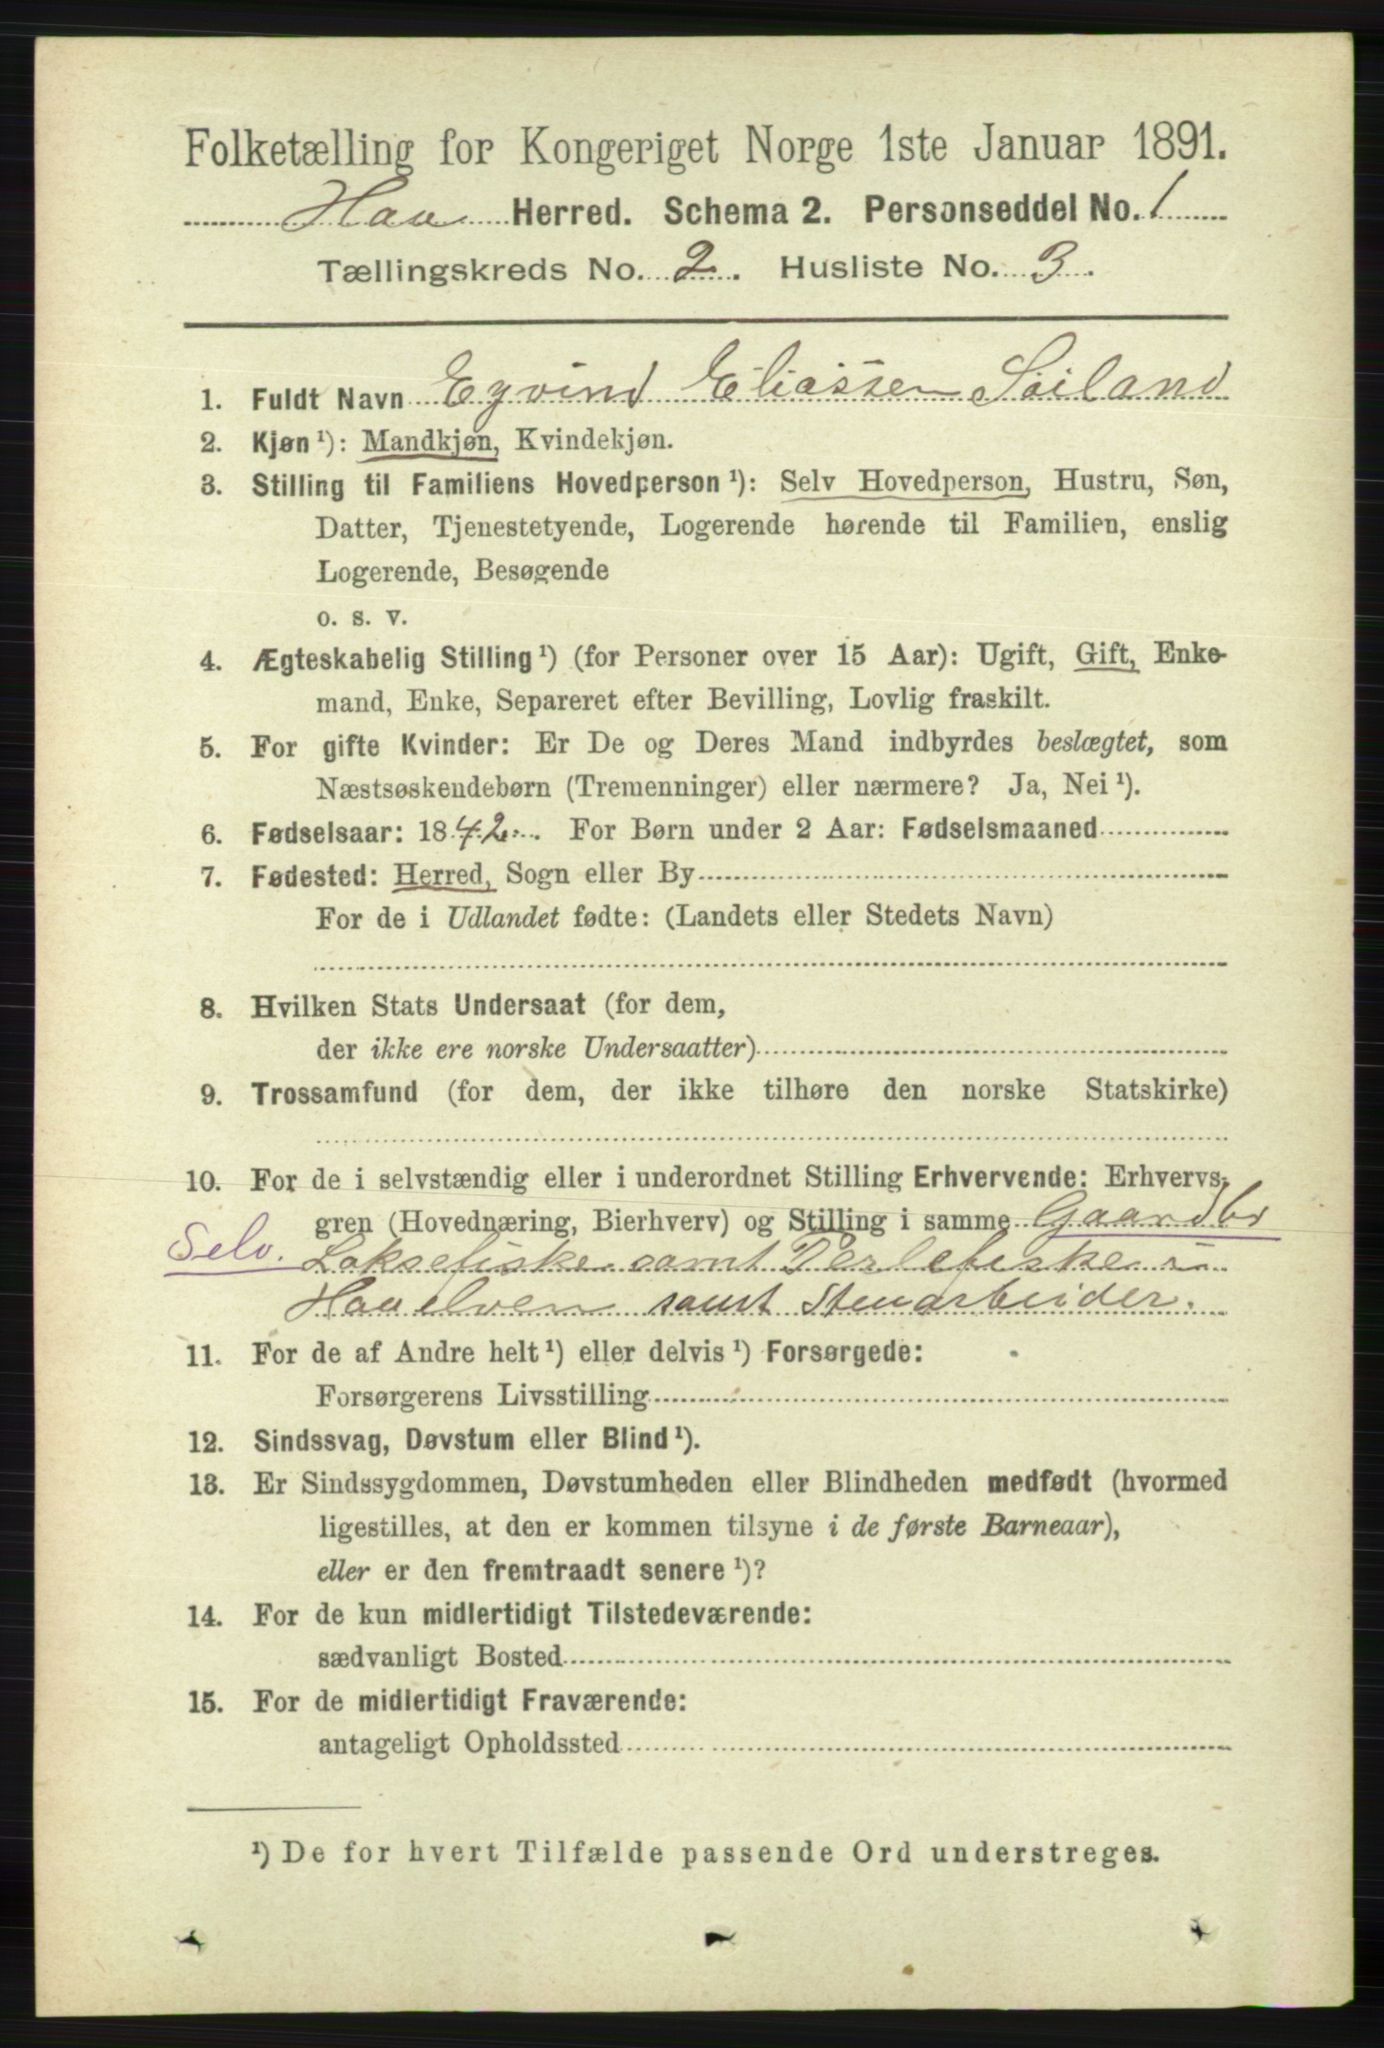 Folketælling for Kongeriget Norge 1ste Januar 1891.
Haa Herred. Schema 2. Personseddel No. 1
Tællingskreds No. 2. Husliste No. 3.
1. Fuldt Navn Eyvind Eliassen Søiland
2. Kjøn ¹): Mandkjøn, Kvindekjøn.
3. Stilling til Familiens Hovedperson ¹): Selv Hovedperson, Hustru, Søn,
Datter, Tjenestetyende, Logerende hørende til Familien, enslig
Logerende, Besøgende
o. s. v.
4. Ægteskabelig Stilling ¹) (for Personer over 15 Aar): Ugift, Gift, Enke-
mand, Enke, Separeret efter Bevilling, Lovlig fraskilt.
5. For gifte Kvinder: Er De og Deres Mand indbyrdes beslægtet, som
Næstsøskendebørn (Tremenninger) eller nærmere? Ja, Nei ¹).
6. Fødselsaar: 1842. For Børn under 2 Aar: Fødselsmaaned
7. Fødested: Herred, Sogn eller By
For de i Udlandet fødte: (Landets eller Stedets Navn)
8. Hvilken Stats Undersaat (for dem,
der ikke ere norske Undersaatter)
9. Trossamfund (for dem, der ikke tilhøre den norske Statskirke)
10. For de i selvstændig eller i underordnet Stilling Erhvervende: Erhvervs-
gren (Hovednæring, Bierhverv) og Stilling i samme Gaardbr
Selv. Laksefiske samt Perlefiske i
Haaelven samt Stenarbeider.
11. For de af Andre helt ¹) eller delvis ¹) Forsørgede:
Forsørgerens Livsstilling
12. Sindssvag, Døvstum eller Blind ¹).
13. Er Sindssygdommen, Døvstumheden eller Blindheden medfødt (hvormed
ligestilles, at den er kommen tilsyne i de første Barneaar),
eller er den fremtraadt senere ¹)?
14. For de kun midlertidigt Tilstedeværende:
sædvanligt Bosted
15. For de midlertidigt Fraværende:
antageligt Opholdssted
¹) De for hvert Tilfælde passende Ord understreges.